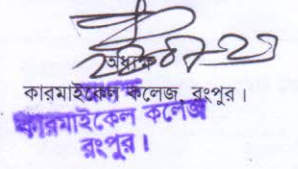 অধ্যক্ষ
কারমাইকেল কলেজ, রংপুর।
কারমাইকেল কলেজ
রংপুর।